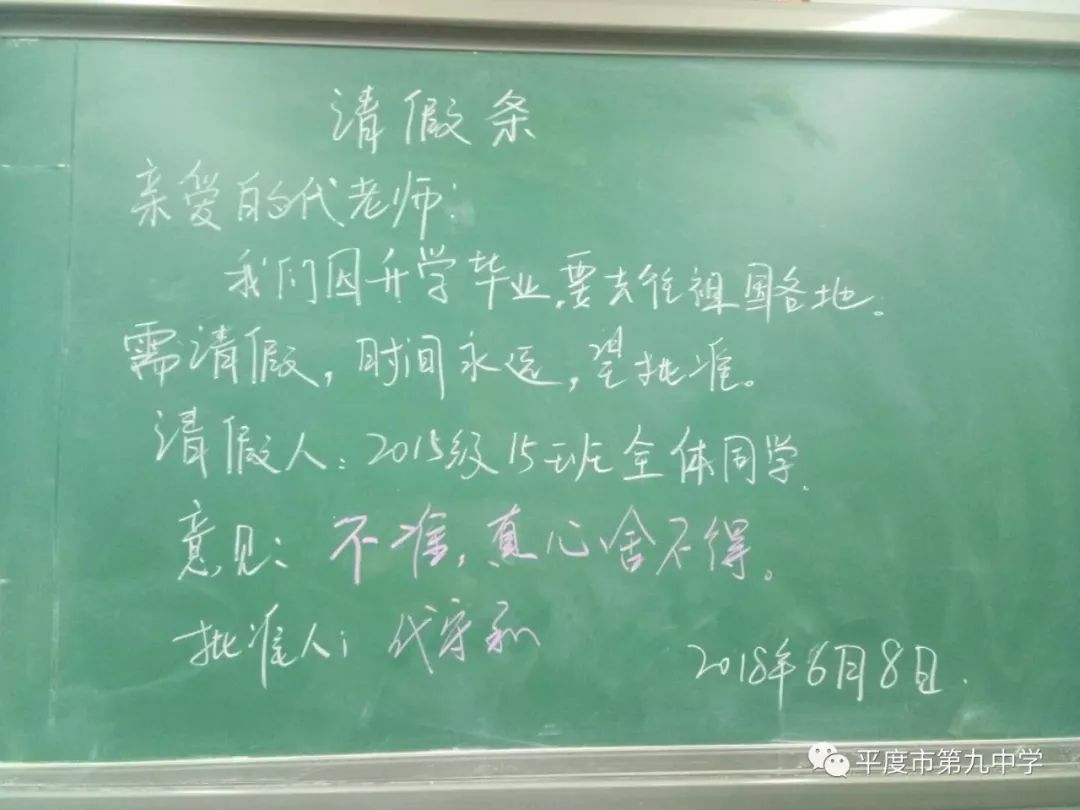 请假条
亲爱的代老师：
我们因升学毕业，要去往祖国各地。
需请假，时间永远，望批准。
请假人：2015级15班全体同学.
意见：不准，真心舍不得。
批准人：代守和
2018年6月8日.
平度市第九中学